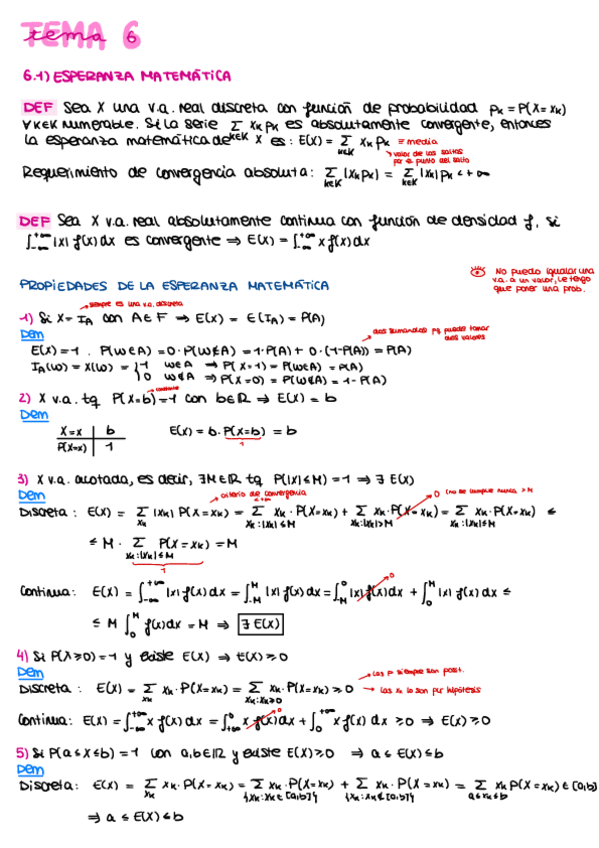 TEMA 6
tema 6
6.1) ESPERANZA MATEMÁTICA
DEF Sea X una v.a. real discreta con función de probabilidad pₖ = P(X=xₖ)
∀k∈K numerable. Si la serie Σ_{k∈K} xₖ pₖ es absolutamente convergente, entonces
la esperanza matemática de X es: E(X) = Σ_{k∈K} xₖ pₖ ≡ media
→ valor de los saltos por el punto del salto
Requerimiento de convergencia absoluta: Σ_{k∈K} |xₖ pₖ| = Σ_{k∈K} |xₖ| pₖ < +∞
DEF Sea X v.a. real absolutamente continua con función de densidad f, si
∫_{-∞}^{+∞} |x| f(x) dx es convergente ⇒ E(X) = ∫_{-∞}^{+∞} x f(x) dx
No puedo igualar una
v.a. a un valor, le tengo
que poner una prob.
PROPIEDADES DE LA ESPERANZA MATEMÁTICA
→ siempre es una v.a. discreta
1) Si X = I_A con A ∈ F ⇒ E(X) = E(I_A) = P(A)
→ dos sumandos pq puede tomar dos valores
Dem
E(X) = 1 . P(ω∈A) = 0·P(ω∉A) = 1·P(A) + 0·(1-P(A)) = P(A)
I_A(ω) = X(ω) = { 1 ω∈A ⇒ P(X=1) = P(ω∈A) = P(A)
0 ω∉A ⇒ P(X=0) = P(ω∉A) = 1 - P(A)
→ constante
2) X v.a. tq P(X=b) = 1 con b∈ℝ ⇒ E(X) = b
Dem
X=x | b
P(X=x) | 1
E(X) = b · P(X=b) = b
1
3) X v.a. acotada, es decir, ∃M∈ℝ tq P(|X|≤M) = 1 ⇒ ∃ E(X)
Dem
→ criterio de convergencia
0 (no se cumple nunca > M
Discreta: E(X) = Σ_{xₖ} |xₖ| P(X=xₖ) = Σ_{xₖ:|xₖ|≤M} xₖ·P(X=xₖ) + Σ_{xₖ:|xₖ|>M} xₖ·P(X=xₖ) = Σ_{xₖ:|xₖ|≤M} xₖ·P(X=xₖ) ≤
≤ M · Σ_{xₖ:|xₖ|≤M} P(X=xₖ) = M
1
Continua: E(X) = ∫_{-∞}^{+∞} |x| f(x) dx = ∫_{-M}^{M} |x| f(x) dx = ∫_{-M}^{0} |x| f(x) dx + ∫_{0}^{M} |x| f(x) dx ≤
0
≤ M ∫_{0}^{M} f(x) dx = M ⇒ ∃ E(X)
4) Si P(X≥0) = 1 y existe E(X) ⇒ E(X) ≥ 0
Dem
→ Las P siempre son posit.
Discreta: E(X) = Σ_{xₖ} xₖ·P(X=xₖ) = Σ_{xₖ:xₖ≥0} xₖ·P(X=xₖ) ≥ 0 → las xₖ lo son por hipótesis
Continua: E(X) = ∫_{-∞}^{+∞} x f(x) dx = ∫_{-∞}^{0} x f(x) dx + ∫_{0}^{+∞} x f(x) dx ≥ 0 ⇒ E(X) ≥ 0
0
5) Si P(a≤X≤b) = 1 con a,b∈ℝ y existe E(X)≥0 ⇒ a ≤ E(X) ≤ b
Dem
Discreta: E(X) = Σ_{xₖ} xₖ·P(X=xₖ) = Σ_{{xₖ:xₖ∈[a,b]}} xₖ·P(X=xₖ) + Σ_{{xₖ:xₖ∉[a,b]}} xₖ·P(X=xₖ) = Σ_{a≤xₖ≤b} xₖ P(X=xₖ) ∈ [a,b]
⇒ a ≤ E(X) ≤ b